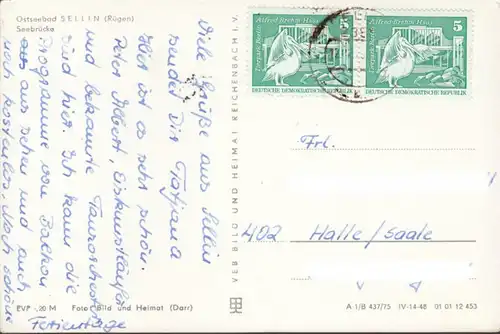 Ostseebad SELLIN (Rügen)
Seebrücke
Viele Grüße aus Sellin
sendet Dir Tatjana
Hier ist es sehr schön.
Peter Albert, Eiskunstläufer
und bekannte Tanzorchester
sind hier. Ich kann die
Programme vom Balkon
aus sehen und auch
noch kostenlos. Noch schöne
Ferientage
EVP -,20 M Foto: Bild und Heimat (Darr)
VEB BILD UND HEIMAT REICHENBACH I. V.
Alfred-Brehm-Haus 5
Tierpark Berlin
DEUTSCHE DEMOKRATISCHE REPUBLIK
Alfred-Brehm-Haus 5
Tierpark Berlin
DEUTSCHE DEMOKRATISCHE REPUBLIK
Frl.
402 Halle/Saale
A 1/B 437/75 IV-14-48 01 01 12 453